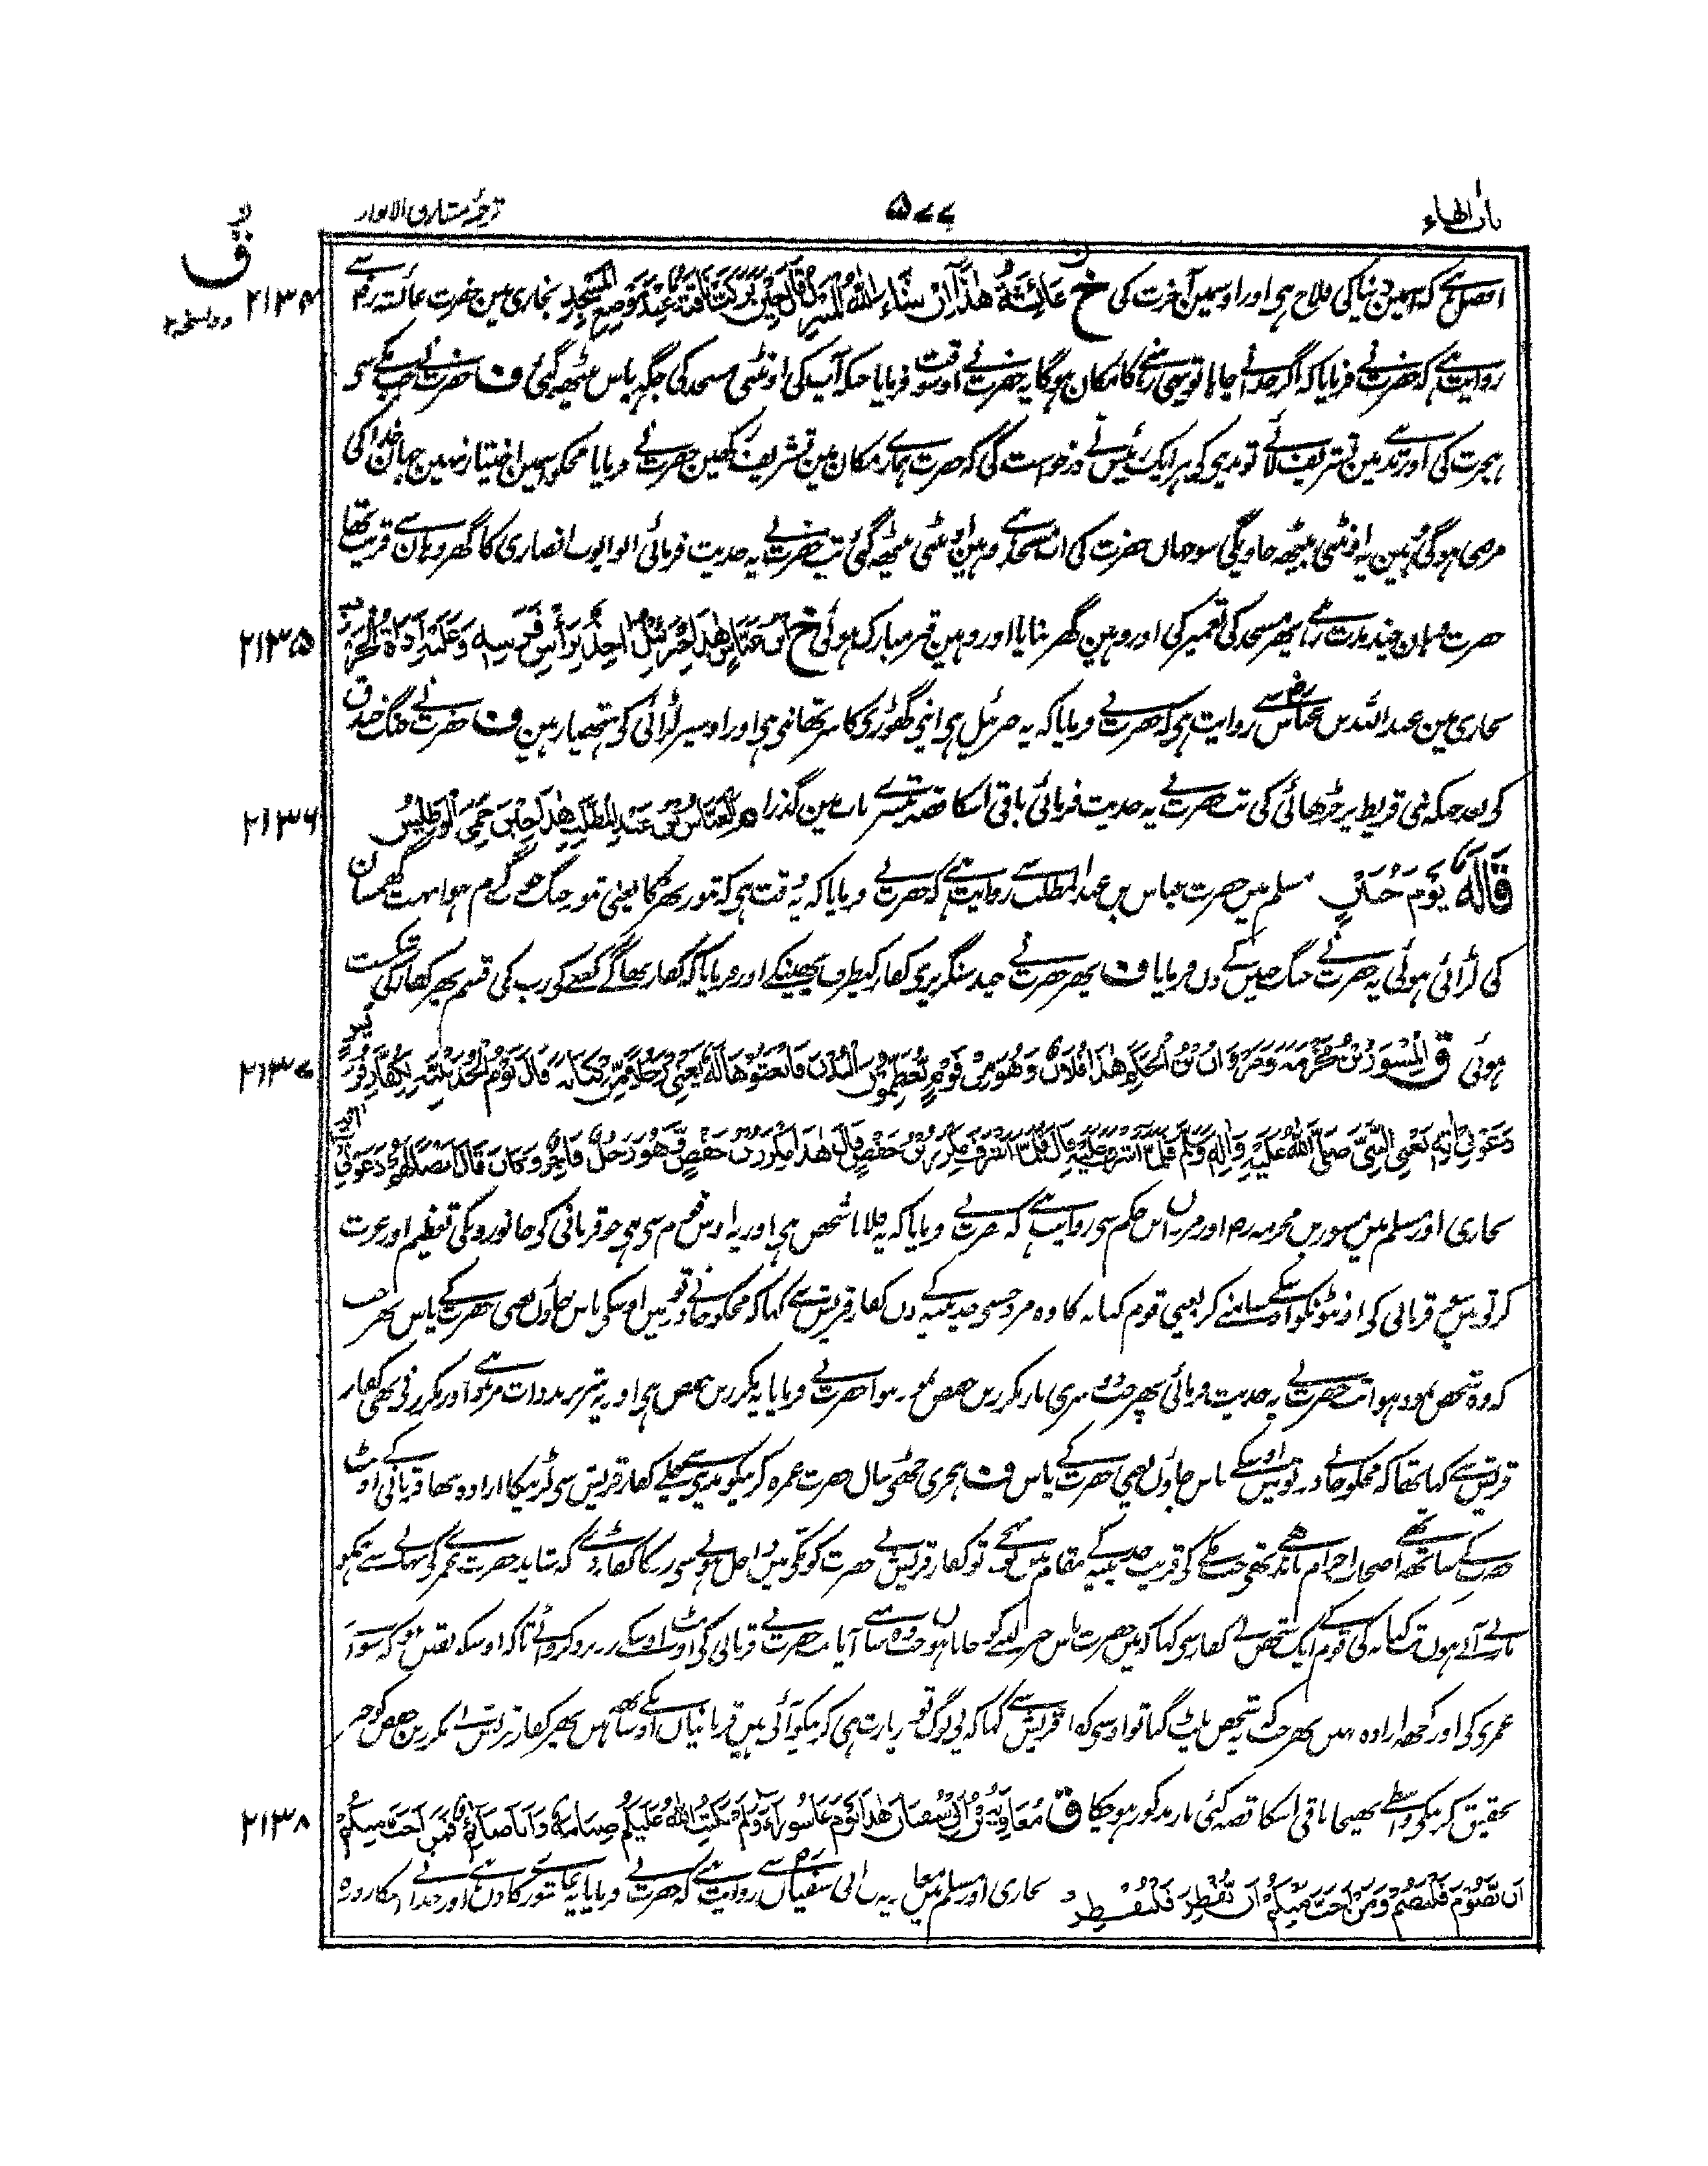 باب الهاء
۵۷۷
ترجمۂ مشارق الانوار
ق
افضل ہے کہ اسمین دنیا کی فلاح ہی اور اوسمین آخرت کی خ عَائِشَةُ هٰذَا إِنْ شَاءَ اللهُ الْمَنْزِلُ قَالَهُ حِيْنَ بَرَكَتْ نَاقَتُهُ عِنْدَ مَوْضِعِ الْمَسْجِدِ بخاری مین حضرت عائشہ رض سے
۲۱۳۴
روایت ہے کہ حضرت نے فرمایا کہ اگر خدا نے چاہا تو یہی رہنے کا مکان ہوگا یہ حضرت نے اوسوقت فرمایا جبکہ آپ کی اونٹنی مسجد کی جگہ پاس بیٹھ گئی ف حضرت نے جب مکے سے
ہجرت کی اور مدینے مین تشریف لائے تو مدینے کی ہر ایک رئیس نے درخواست کی کہ حضرت ہمارے مکان مین تشریف رکھین حضرت نے فرمایا مجکو اسمین اختیار نہین جہان خدا کی
مرضی ہوگی وہین یہ اونٹنی بیٹھ جاویگی سو جہاں حضرت کی اب مسجد ہے وہین اونٹنی بیٹھ گئی تب حضرت نے یہ حدیث فرمائی ابو ایوب انصاری کا گھر وہان سے قریب تھا
حضرت وہان چند مدت رہے پھر مسجد کی تعمیر کی اور وہین گھر بنایا اور وہین قبر مبارک ہوئی خ ابْنُ عَبَّاسٍ هٰذَا جِبْرَئِيْلُ اٰخِذٌ بِرَأْسِ فَرَسِهِ وَعَلَيْهِ اَدَاةُ الْحَرْبِ
۲۱۳۵
بخاری مین عبد اللہ بن عباس رض سے روایت ہی کہ حضرت نے فرمایا کہ یہ جبرئیل ہی اپنی گھوڑی کا سر تھامی ہی اور اوسپر لڑائی کی ہتھیار ہین ف حضرت نے جنگ خندق
کی بعد جبکہ بنی قریظہ پر چڑھائی کی تب حضرت نے یہ حدیث فرمائی باقی اسکا قصہ تیسرے باب مین گذرا م الْعَبَّاسُ بْنُ عَبْدِ الْمُطَّلِبِ هٰذَا حِيْنَ حَمِيَ الْوَطِيْسُ
۲۱۳۶
قَالَهُ يَوْمَ حُنَيْنٍ مسلم مین حضرت عباس بن عبد المطلب سے روایت ہے کہ حضرت نے فرمایا کہ یہ وقت ہی کہ تنور بھڑکا یعنی تنور جنگ کا گرم ہوا بہت گھمسان
کی لڑائی ہوئی یہ حضرت نے جنگ حنین کے دن فرمایا ف پھر حضرت نے چند سنگریزی کفار کیطرف پھینکے اور فرمایا کہ کفار بھاگے کعبے کی رب کی قسم پھر کفار کی شکست
ہوئی ق الْمِسْوَرُ بْنُ مَخْرَمَةَ وَمَرْوَانُ بْنُ الْحَكَمِ هٰذَا فُلَانٌ وَهُوَ مِنْ قَوْمٍ يُعَظِّمُوْنَ الْبُدْنَ فَابْعَثُوْهَا لَهُ يَعْنِيْ رَجُلًا مِّنْ كِنَانَةَ قَالَ يَوْمَ الْحُدَيْبِيَةِ لِكُفَّارِ قُرَيْشٍ
۲۱۳۷
دَعُوْنِيْ اٰتِهِ يَعْنِي النَّبِيَّ صَلَّى اللهُ عَلَيْهِ وَاٰلِهِ وَسَلَّمَ فَلَمَّا اَشْرَفَ عَلَيْهِ قَالَ فَلَمَّا اَشْرَفَ مِكْرَزُ بْنُ حَفْصٍ قَالَ هٰذَا مِكْرَزُ بْنُ حَفْصٍ وَهُوَ رَجُلٌ فَاجِرٌ وَكَانَ قَالَ دَعُوْنِيْ اٰتِهِ
بخاری اور مسلم مین مسور بن مخرمہ رض اور مروان بن حکم سی روایت ہے کہ حضرت نے فرمایا کہ یہ فلانا شخص ہی اور یہ اوس قوم سی ہی جو قربانی کی جانورونکی تعظیم اور عزت
کرتی ہین سو تم قربانی کی اونٹونکو اوسکے سامنے کر یعنی قوم کنانہ کا وہ مرد جسنے حدیبیہ کے دن کفار قریش سے کہا کہ مجکو جانے دو تو مین اوسکی پاس جاؤں یعنی حضرت کے پاس پھر جب
کہ وہ شخص نمود ہوا تب حضرت نے یہ حدیث فرمائی پھر جب دوسری بار مکرز بن حفص نمود ہوا حضرت نے فرمایا یہ مکرز بن حفص ہی اور یہ شریر بدذات مرد ہے اور مکرز نی بھی کفار
قریش سے کہا تھا کہ مجکو جانے دو تو مین اوسکے پاس جاؤں یعنی حضرت کے پاس ف ہجری چھٹی سال حضرت عمرہ کرنیکو مدینے سے چلے کفار قریش سی لڑنیکا ارادہ نتھا قربانی کے اونٹ
حضرت کے ساتھ تھے اصحاب احرام باندھے تھے جب مکے کی قریب حدیبیہ کے مقام مین پہنچے تو کفار قریش نے حضرت کو مکے مین داخل ہونے سی روکا کفار ڈرے کہ شاید حضرت عمرے کی بہانے سے ہمکو
مارنے آئے ہوں تب کنانہ کی قوم کے ایک شخص نے کفار سی کہا کہ مین حضرت پاس خبر لینے کو جاتا ہوں جب وہ سامنے آیا حضرت نے قربانی کی اونٹ اوسکے روبرو کروائے تاکہ اوسکو یقین ہو کہ سوا
عمری کی اور کچھ ارادہ نہیں پھر جب کہ یہ شخص پلٹ گیا تو اوسنی کفار قریش سے کہا کہ یہ لوگ تو زیارت ہی کرنیکو آئی ہین قربانیاں اونکے ساتھ ہین پھر کفار قریش نے مکرز بن حفص کو خبر
تحقیق کرنیکو واسطے بھیجا باقی اسکا قصہ کئی بار مذکور ہو چکا ق مُعَاوِيَةُ بْنُ اَبِيْ سُفْيَانَ هٰذَا يَوْمُ عَاشُوْرَاءَ وَلَمْ يَكْتُبِ اللهُ عَلَيْكُمْ صِيَامَهُ وَاَنَا صَائِمٌ فَمَنْ اَحَبَّ مِنْكُمْ
۲۱۳۸
اَنْ يَّصُوْمَ فَلْيَصُمْ وَمَنْ اَحَبَّ مِنْكُمْ اَنْ يُّفْطِرَ فَلْيُفْطِرْ بخاری اور مسلم مین معاویہ بن ابی سفیان رض سے روایت ہے کہ حضرت نے فرمایا یہ عاشورے کا دن ہے اور خدا نے اسکا روزہ